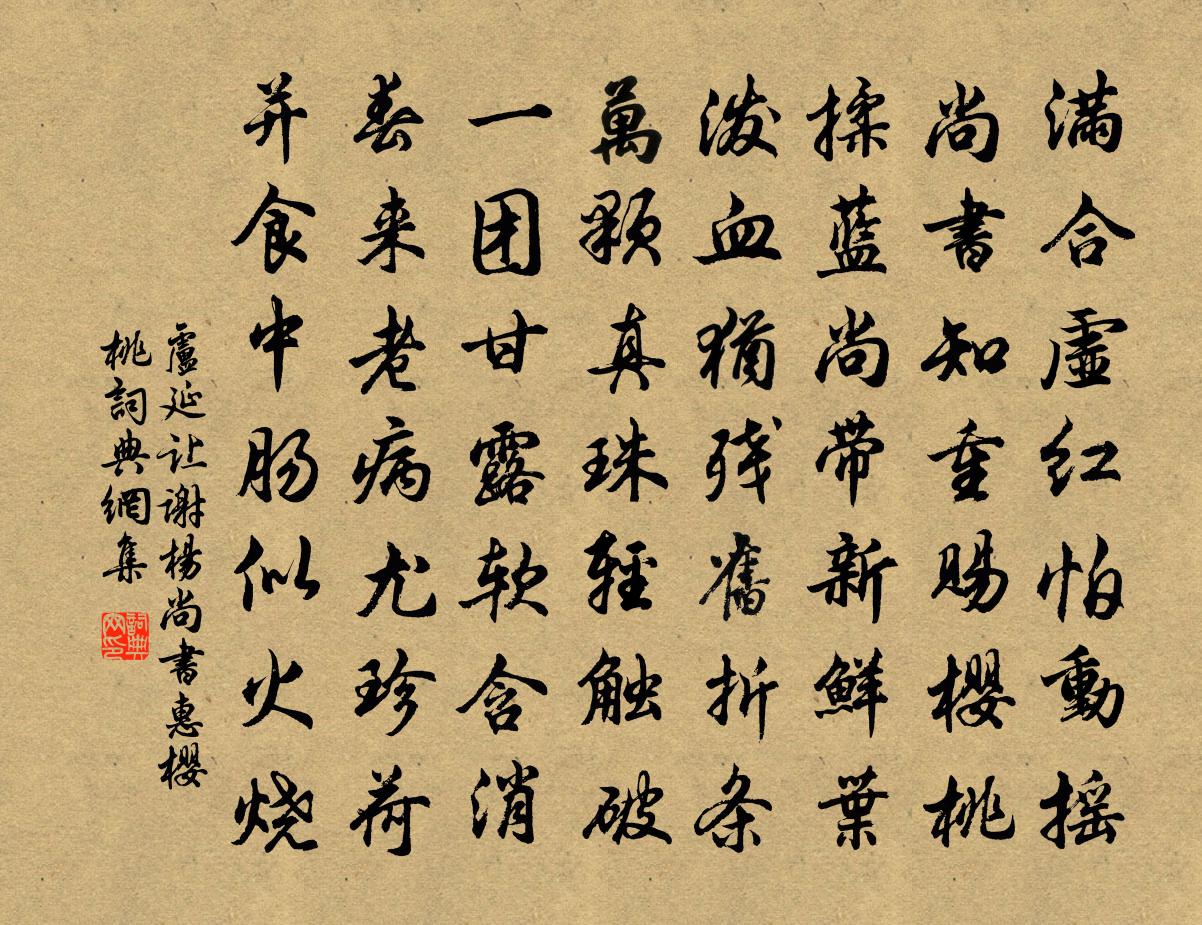 满合虚红怕動摇
尚書知重賜櫻桃
揉藍尚带新鮮葉
泼血猶残舊折条
萬顆真珠輕触破
一团甘露软含消
春来老病尤珍荷
并食中肠似火烧
盧延让谢楊尚書惠櫻
桃詞典網集
詞典网印